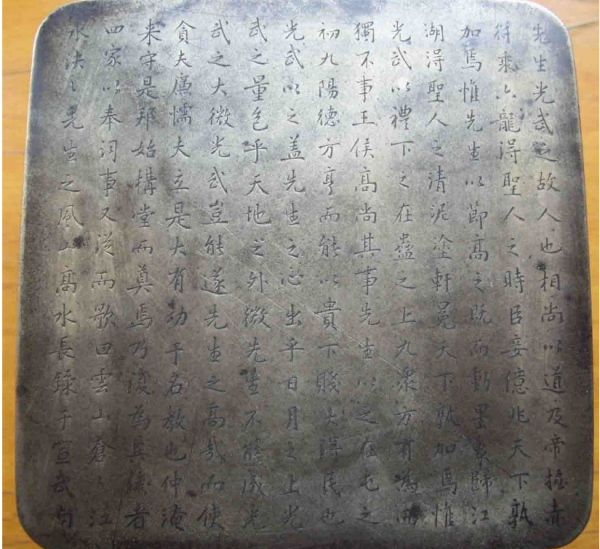 先生光武之故人也相尚以道及帝握赤
符乘六龍得聖人之時臣妾億兆天下孰
加焉惟先生以節高之既而動星象歸江
湖得聖人之清泥塗軒冕天下孰加焉惟
光武以禮下之在蠱之上九衆方有為而
獨不事王侯高尚其事先生以之在屯之
初九陽德方亨而能以貴下賤大得民也
光武以之蓋先生之心出乎日月之上光
武之量包乎天地之外微先生不能成光
武之大微光武豈能遂先生之高哉而使
貪夫廉懦夫立是大有功于名教也仲淹
來守是邦始構堂而奠焉乃復為其後者
四家以奉祠事又從而歌曰雲山蒼〻江
水泱〻先生之風山高水長錄于宣武南